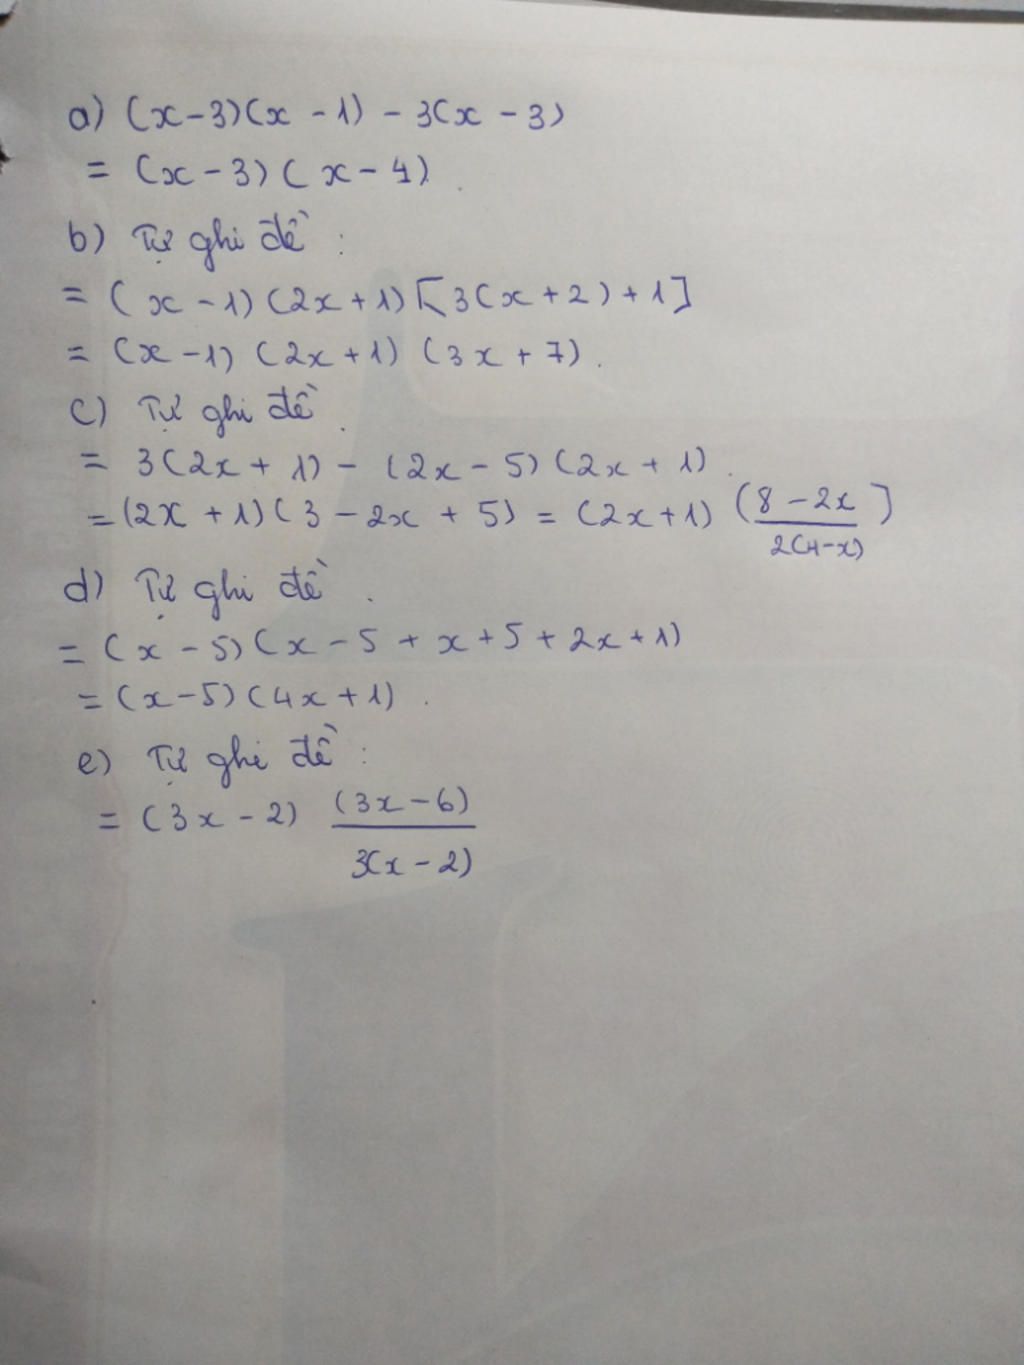 a) (x-3)(x - 1) - 3(x - 3)
= (x - 3) ( x - 4)
b) Tự ghi đề :
= ( x - 1) (2x + 1) [3(x + 2) + 1]
= (x - 1) (2x + 1) (3x + 7) .
c) Tự ghi đề .
= 3(2x + 1) - (2x - 5) (2x + 1) .
= (2x + 1) ( 3 - 2x + 5) = (2x+1) (8 - 2x)
2(4-x)
d) Tự ghi đề .
= (x - 5) (x - 5 + x + 5 + 2x + 1)
= (x - 5) (4x + 1) .
e) Tự ghi đề :
= (3x - 2) (3x - 6)
3(x - 2)